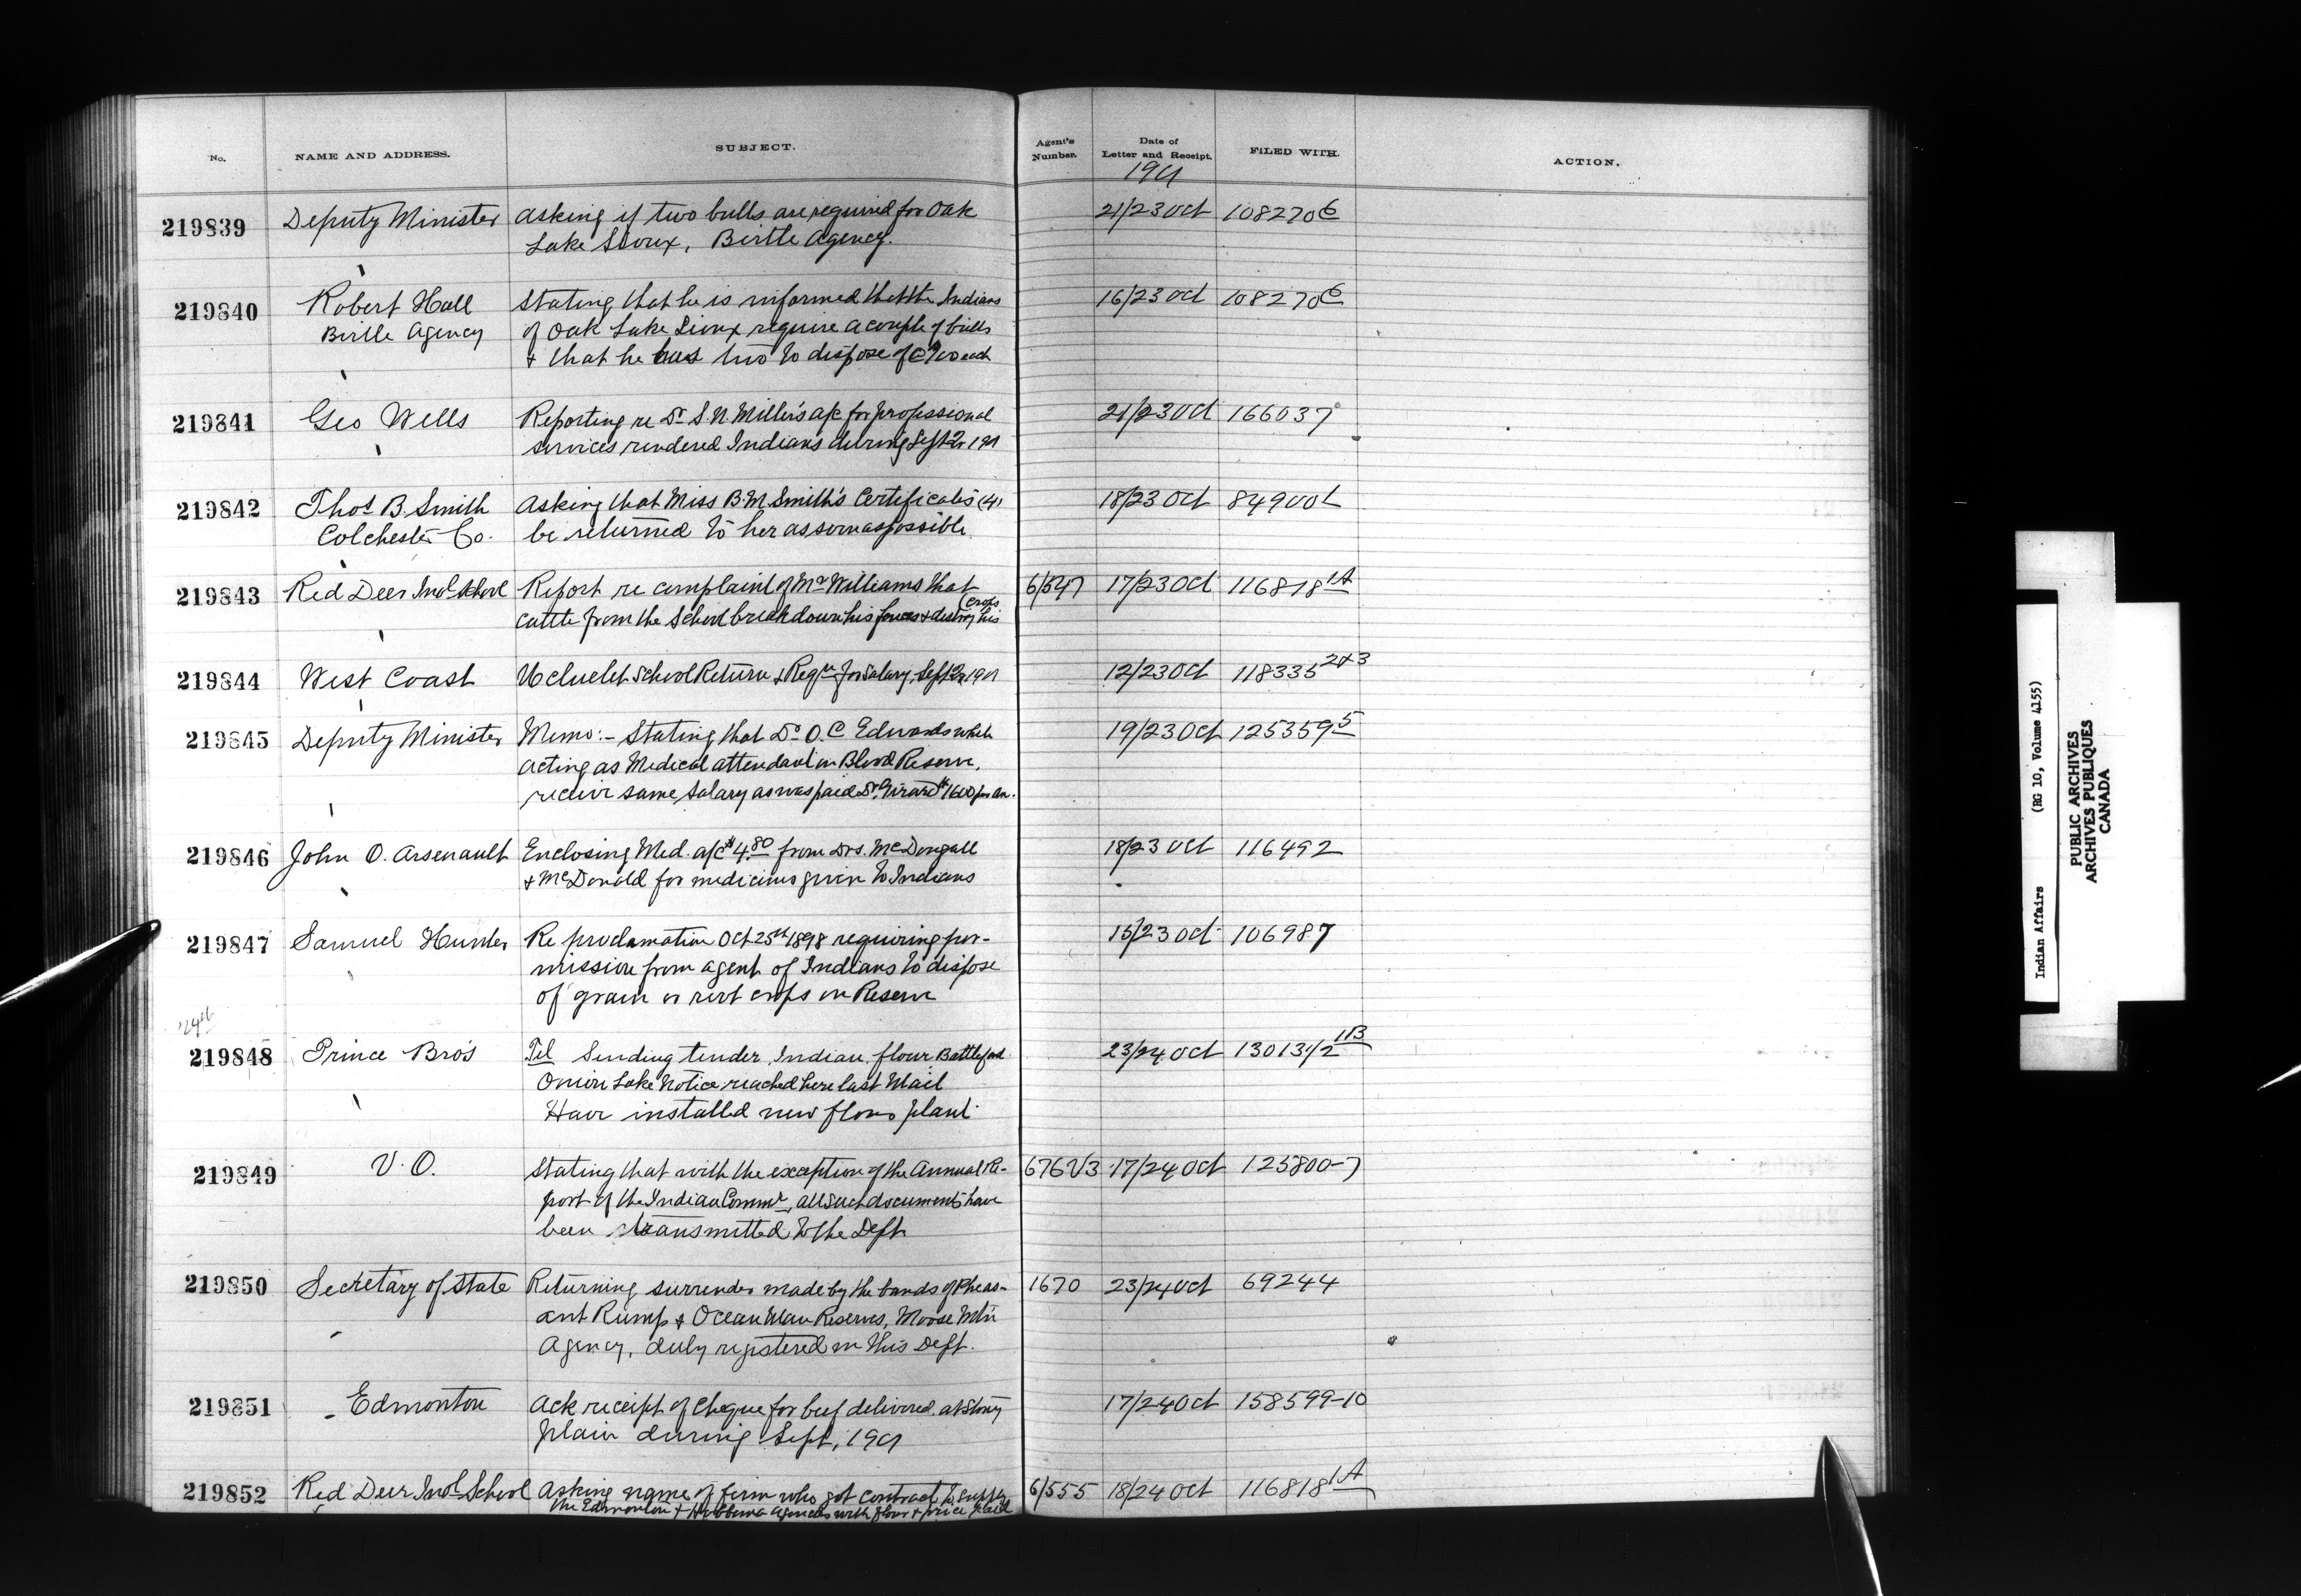 No. NAME AND ADDRESS. SUBJECT. Agent's Number. Date of Letter and Receipt. FILED WITH. ACTION.
1901
219839 Deputy Minister Asking if two bulls are required for Oak 21/23 Oct 108270 6
Lake Sioux, Birtle Agency.
219840 Robert Hall Stating that he is informed that the Indians 16/23 Oct 108270 6
Birtle Agency of Oak Lake Sioux require a couple of bulls
& that he has two to dispose of @ each
219841 Geo Wells Reporting re Dr. S. N. Miller's a/c for professional 21/23 Oct 166037
services rendered Indians during Sept Qr 1901
219842 Thos B. Smith Asking that Miss B. M. Smith's Certificates (4) 18/23 Oct 84900 L
Colchester Co. be returned to her as soon as possible.
219843 Red Deer Indl School Report re complaint of Mr Williams that 6/547 17/23 Oct 116818 1A
cattle from the School break down his fences & destroy his (crops
219844 West Coast Ucluelet School Return & Reqn for Salary, Sept Qr 1901 12/23 Oct 118335 2&3
219845 Deputy Minister Memo:- Stating that Dr O. C Edwards while 19/23 Oct 125359 5
acting as Medical attendant on Blood Reserve,
receive same salary as was paid Dr. Girard $1600 per an.
219846 John O. Arsenault Enclosing Med. a/c $4.80 from Drs. McDougall 18/23 Oct 116492
& McDonald for medicines given to Indians
219847 Samuel Hunter Re proclamation Oct 25th 1898 requiring per- 15/23 Oct 106987
mission from agent of Indians to dispose
of grain or root crops on Reserve
24th
219848 Prince Bro's Tel Sending tender Indian flour Battleford 23/24 Oct 130131/2 1B
Onion Lake Notice reached here last Mail
Have installed new flour plant.
219849 V. O. Stating that with the exception of the Annual Re- 676 1/3 17/24 Oct 125800-7
port of the Indian Commr, all such documents have
been transmitted to the Dept
219850 Secretary of State Returning surrender made by the bands of Pheas- 1670 23/24 Oct 69244
ant Rump & Ocean Man Reserves, Moose Mtn
Agency, duly registered in this Dept.
219851 Edmonton Ack receipt of Cheque for beef delivered at Stony 17/24 Oct 158599-10
Plain during Sept, 1901
219852 Red Deer Indl School Asking name of firm who got contract to supply 6/555 18/24 Oct 116818 1A
the Edmonton & Hobbema Agencies with flour & price paid
Indian Affairs (RG 10, Volume 4155)
PUBLIC ARCHIVES
ARCHIVES PUBLIQUES
CANADA